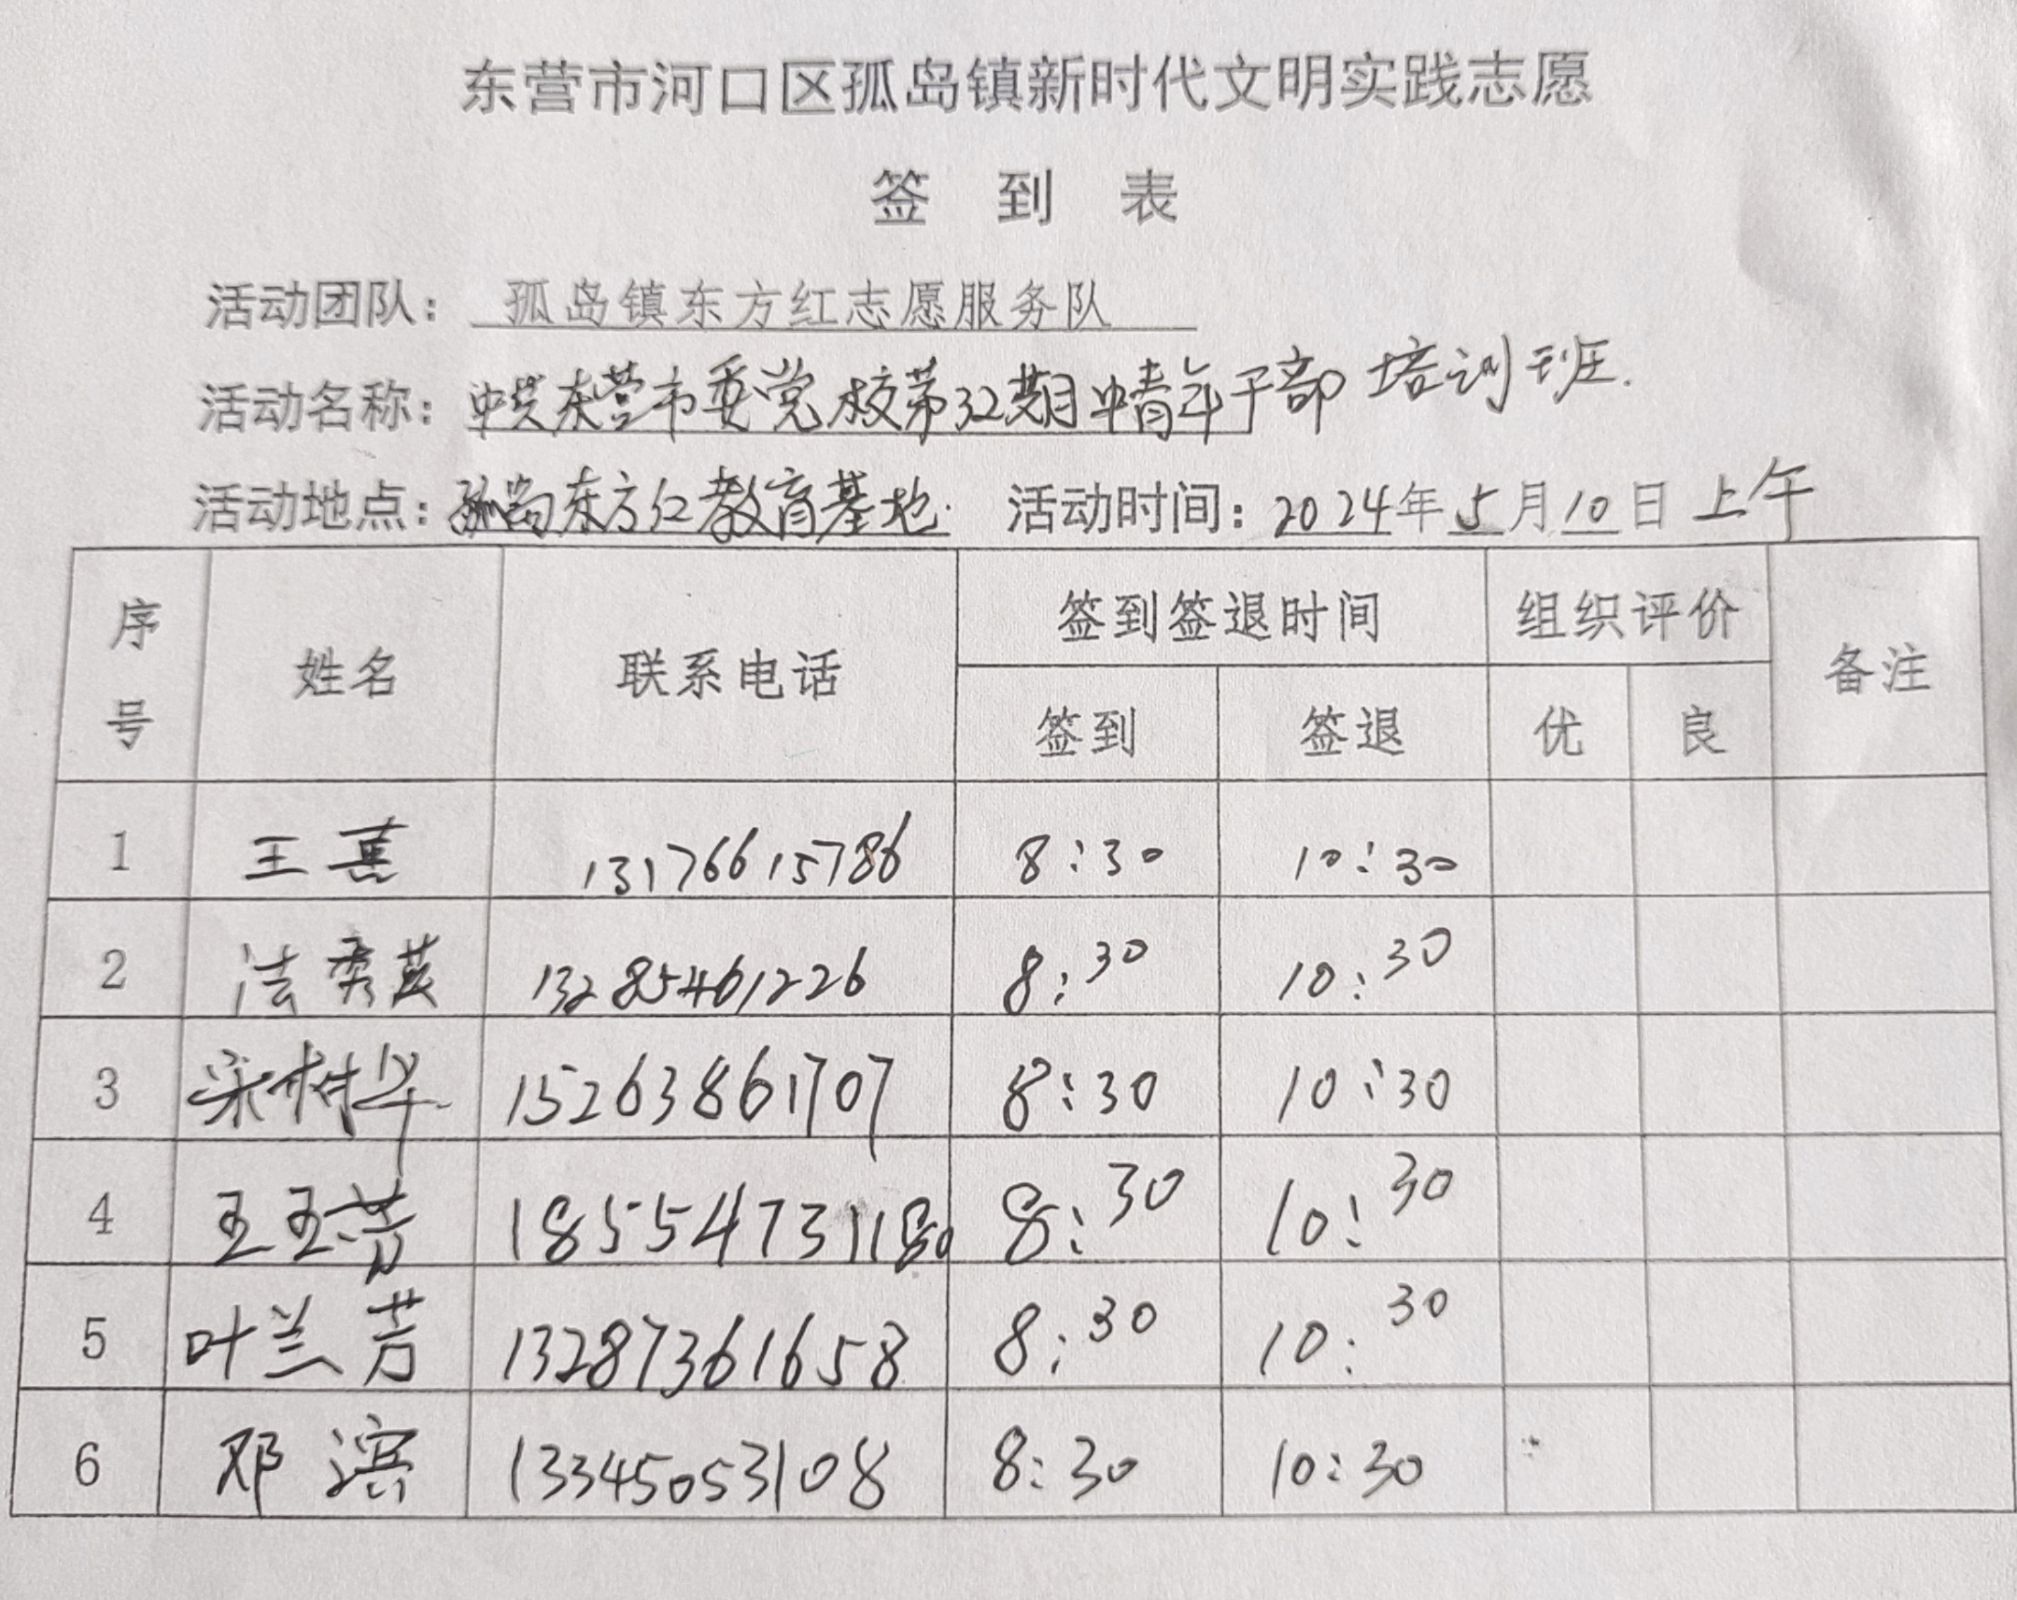 东营市河口区孤岛镇新时代文明实践志愿
签 到 表
活动团队： 孤岛镇东方红志愿服务队
活动名称：中共东营市委党校第32期中青年干部培训班.
活动地点：孤岛东方红教育基地. 活动时间：2024年5月10日 上午
序号 姓名 联系电话 签到签退时间 组织评价 备注
签到 签退 优 良
1 王 13176615786 8:30 10:30
2 法秀英 13285461226 8:30 10:30
3 宋树华 15263861707 8:30 10:30
4 王玉芳 1855473118 8:30 10:30
5 叶兰芳 13287361658 8:30 10:30
6 邓滨 13345053108 8:30 10:30